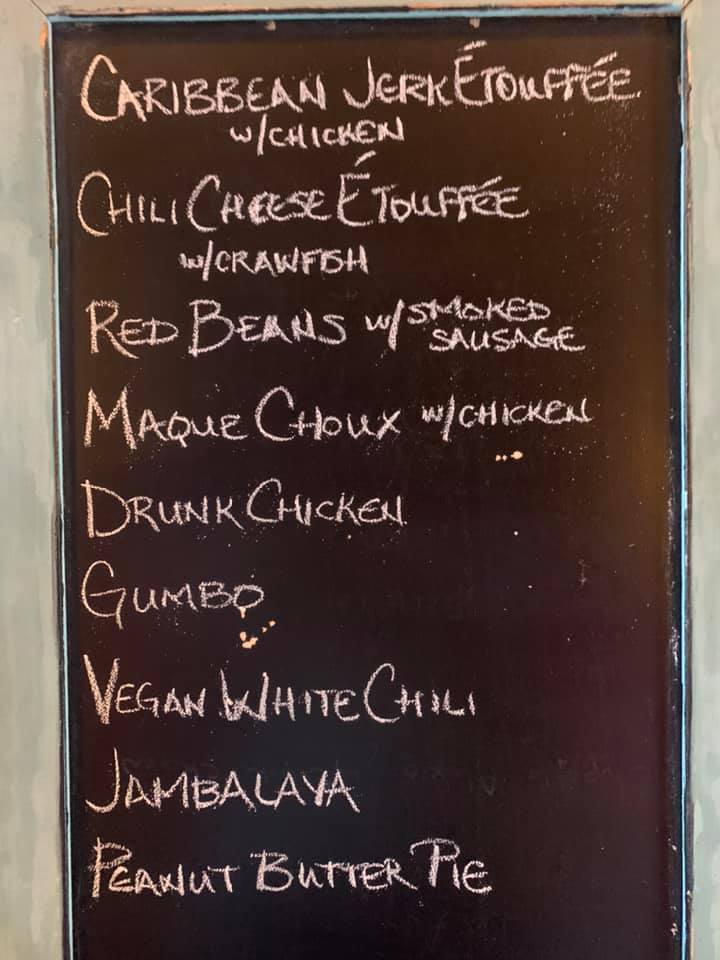 CARIBBEAN JERK ÉTOUFFÉE
W/CHICKEN
CHILI CHEESE ÉTOUFFÉE
W/CRAWFISH
RED BEANS W/SMOKED
SAUSAGE
MAQUE CHOUX W/CHICKEN
DRUNK CHICKEN
GUMBO
VEGAN WHITE CHILI
JAMBALAYA
PEANUT BUTTER PIE